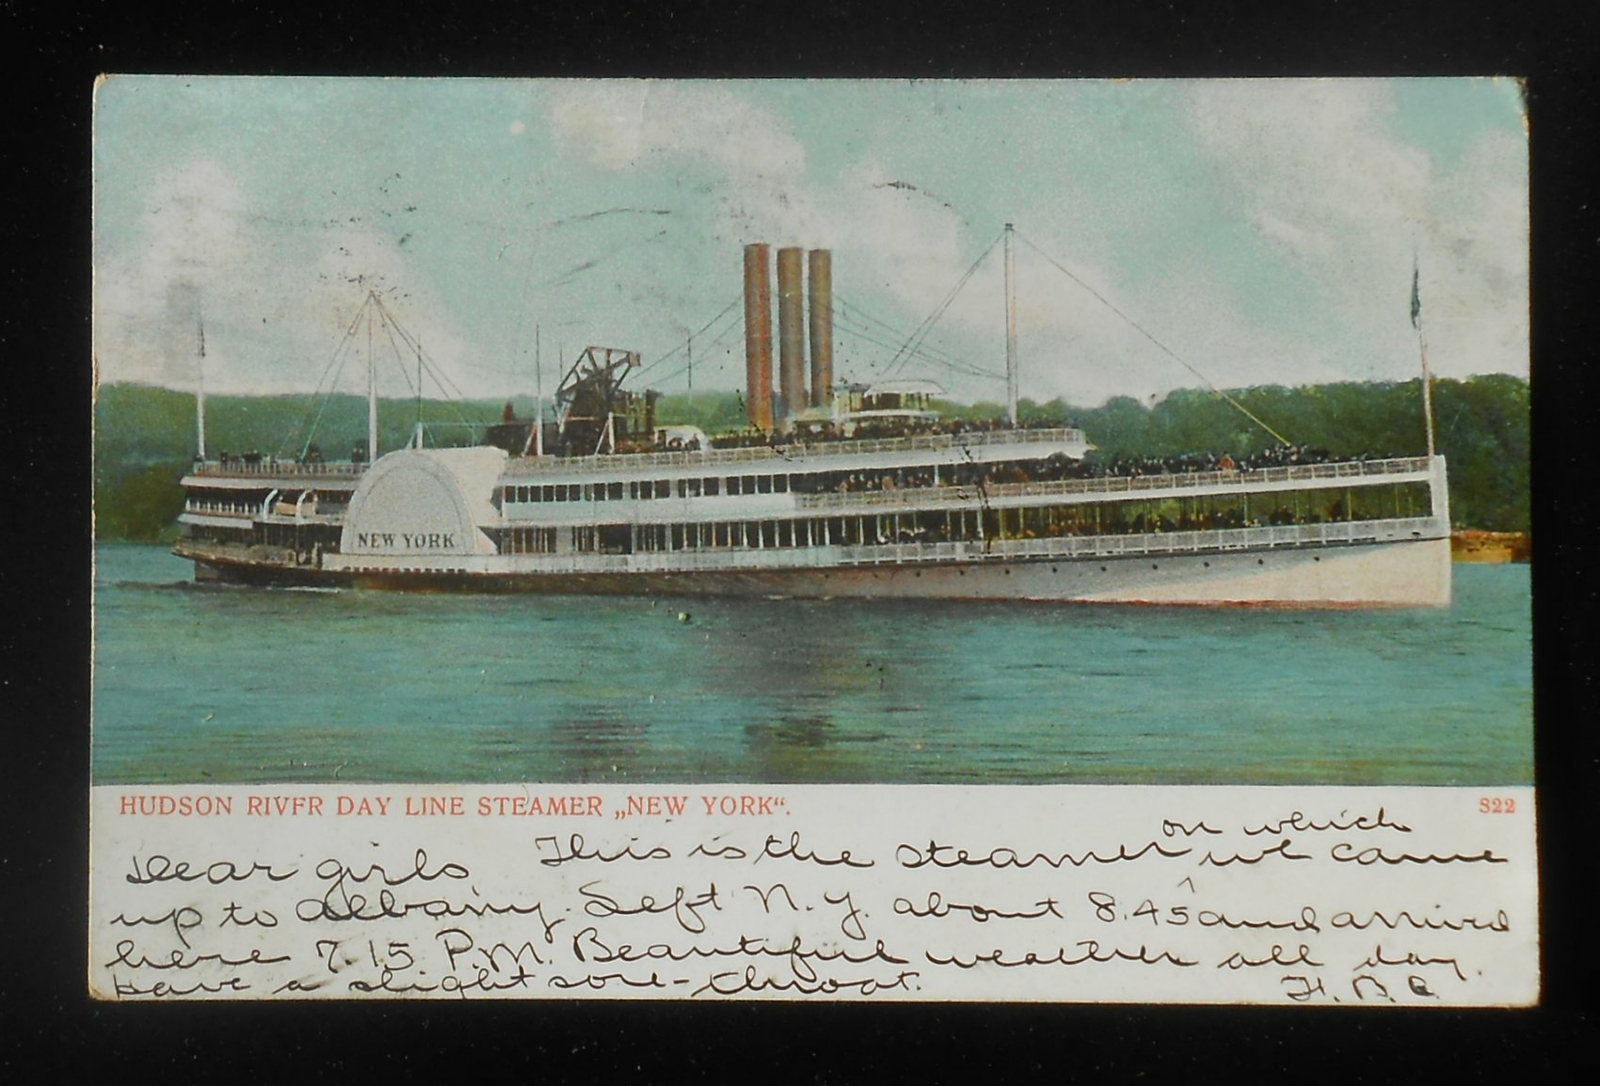 NEW YORK
HUDSON RIVFR DAY LINE STEAMER „NEW YORK“.
S22
on which
Dear girls This is the steamer ^ we came
up to Albany. Left N.Y. about 8.45 and arrived
here 7.15 P.M. Beautiful weather all day.
Have a slight sore-throat.
H. B. C.